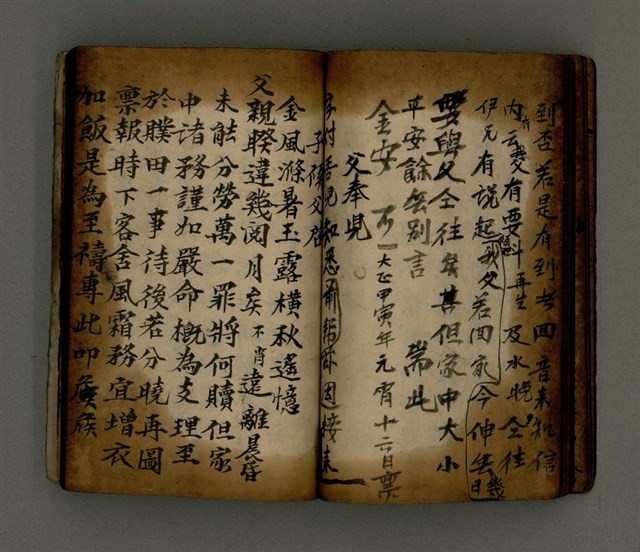 到否若是有到出回音來知信
內有云我父有要斗再生及水晚仝往
伊兄有說起我父若回家今伸無幾日
要與父仝往矣其但家中大小
平安餘無別言 耑此
金安
大正甲寅年元宵十六日稟
父奉兒
字付吾兒知悉
子條父名
金風滌暑玉露橫秋遙憶
父親睽違幾閱月矣不肖遠離晨昏
未能分勞萬一罪將何贖但家
中諸務謹如嚴命概為支理至
於贌田一事待後若分曉再圖
稟報時下客舍風霜務宜增衣
加飯是為至禱專此叩候